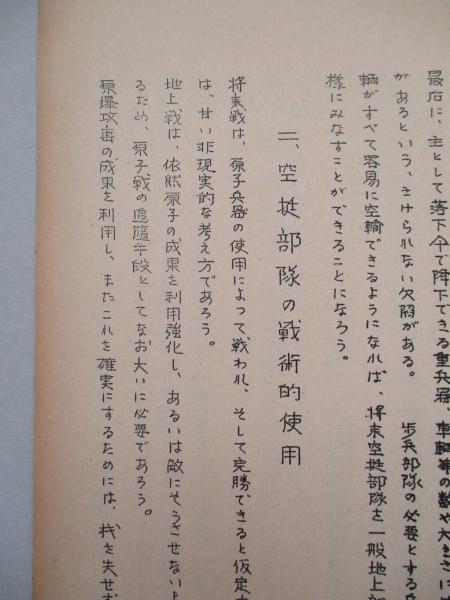 最后に、主として落下伞で降下できる重兵器、車輌等の数や大きさに
があるという、さけられない欠陥がある。 歩兵部隊の必要とする
輌がすべて容易に空輸できるようになれば、将来空挺部隊を一般地上部
様にみなすことができることになろう。
二、空挺部隊の戦術的使用
将来戦は、原子兵器の使用によって戦われ、そして完勝できると仮定す
は、甘い非現実的な考え方であろう。
地上戦は、依然原子の成果を利用強化し、あるいは敵にそうさせないよ
るため、原子戦の追随手段としてなお大いに必要であろう。
原爆攻撃の成果を利用し、またこれを確実にするためには、机を失せず